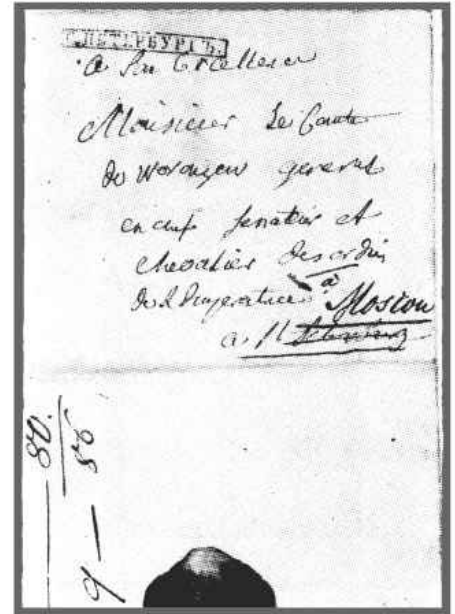 С.ПЕТЕРБУРГЪ.
a Son Excellence
Monsieur Le Comte
de Woronzow general
en chef senateur et
chevalier des ordres
de l Imperatrice a Moscou
a St
80.
86
9